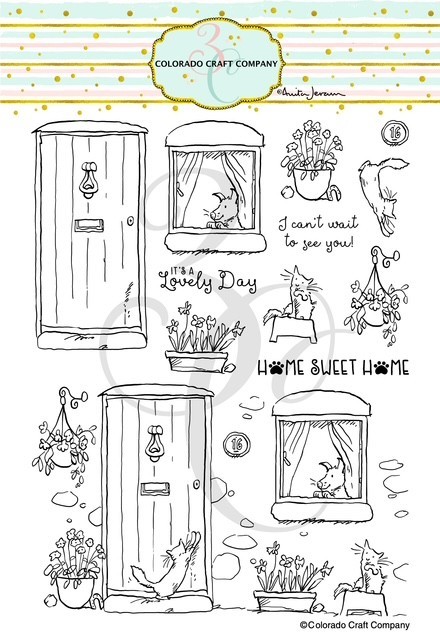 3C
COLORADO CRAFT COMPANY
©Anita Jeram
16
I can't wait
to see you!
IT'S A
Lovely Day
HOME SWEET HOME
16
©Colorado Craft Company